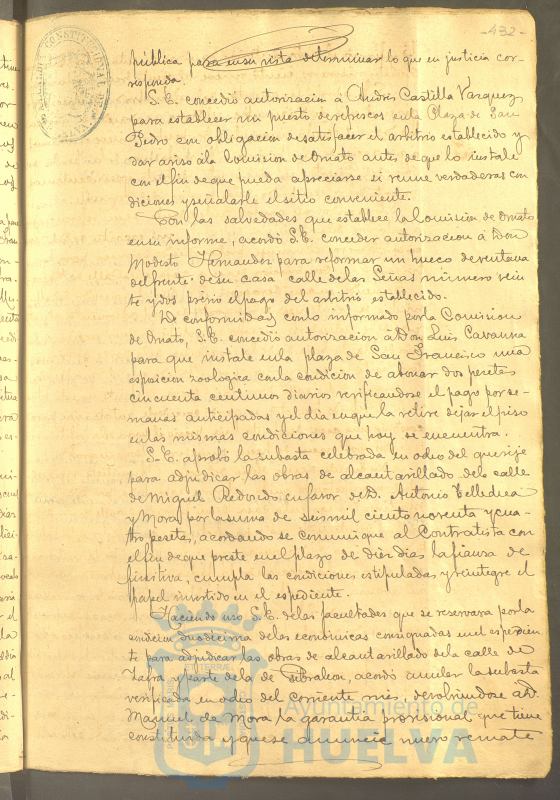 -432-
pública para en su vista determinar lo que en justicia cor-
responda.
S. E. concedió autorizacion á Andrés Castilla Vazquez
para establecer un puesto de refrescos en la Plaza de San
Pedro con obligacion de satisfacer el arbitrio establecido y
dar aviso á la Comision de Ornato antes de que lo instale
con el fin de que pueda apreciarse si reune verdaderas con
diciones y señalarle el sitio conveniente.
Con las salvedades que establece la Comisión de Ornato
en su informe, acordó S. E. conceder autorizacion á Don
Modesto Hernandez para reformar un hueco de ventana
del frente de su casa calle de las Señas número vein
te y dos previo el pago del arbitrio establecido.
De conformidad con lo informado por la Comision
de Ornato, S. E. concedió autorizacion á Don Luis Cavanna
para que instale en la plaza de San Francisco una
esposicion zoologica con la condicion de abonar dos pesetas
cincuenta centimos diarios verificandose el pago por se-
manas anticipadas y el dia en que la retire dejar el piso
en las mismas condiciones que hoy se encuentra.
S. E. aprobó la subasta celebrada en ocho del que rije
para adjudicar las obras de alcantarillado de la calle
de Miguel Redondo en favor de D. Antonio
y Mora, por la suma de seis mil ciento noventa y cua-
tro pesetas, acordando se comunique al Contratista con
el fin de que preste en el plazo de diez dias la fianza de
finitiva, cumpla las condiciones estipuladas y reintegre el
papel invertido en el espediente.
Haciendo uso S. E. de las facultades que se reservara por la
condicion duodecima de las economicas consignadas en el espedien
te para adjudicar las obras de alcantarillado de la calle de
Zafra y parte de la de Gibraleon, acordó anular la subasta
verificada en ocho del corriente mes, devolviendose á D.
Manuel de Mora la garantia provisional que tiene
constituida y que se anuncie nuevo remate
Ayuntamiento de
HUELVA